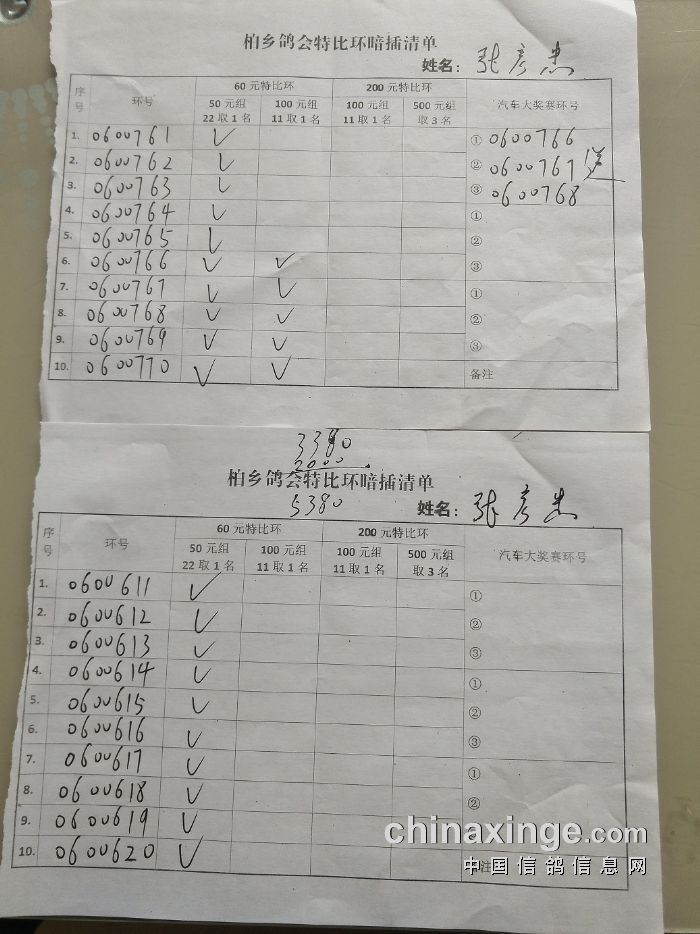 柏乡鸽会特比环暗插清单
姓名：张彦忠
序号 环号 60元特比环 200元特比环 汽车大奖赛环号
50元组 22取1名 100元组 11取1名 100元组 11取1名 500元组 取3名
1. 0600761 ✓ ① 0600766
2. 0600762 ✓ ② 0600767 送
3. 0600763 ✓ ③ 0600768
4. 0600764 ✓ ①
5. 0600765 ✓ ②
6. 0600766 ✓ ✓ ③
7. 0600767 ✓ ✓ ①
8. 0600768 ✓ ✓ ②
9. 0600769 ✓ ✓ ③
10. 0600770 ✓ ✓ 备注
3380
2000
柏乡鸽会特比环暗插清单
5380
姓名：张彦忠
序号 环号 60元特比环 200元特比环 汽车大奖赛环号
50元组 22取1名 100元组 11取1名 100元组 11取1名 500元组 取3名
1. 0600611 ✓ ①
2. 0600612 ✓ ②
3. 0600613 ✓ ③
4. 0600614 ✓ ①
5. 0600615 ✓ ②
6. 0600616 ✓ ③
7. 0600617 ✓ ①
8. 0600618 ✓ ②
9. 0600619 ✓
10. 0600620 ✓ 备注
chinaxinge.com
中国信鸽信息网